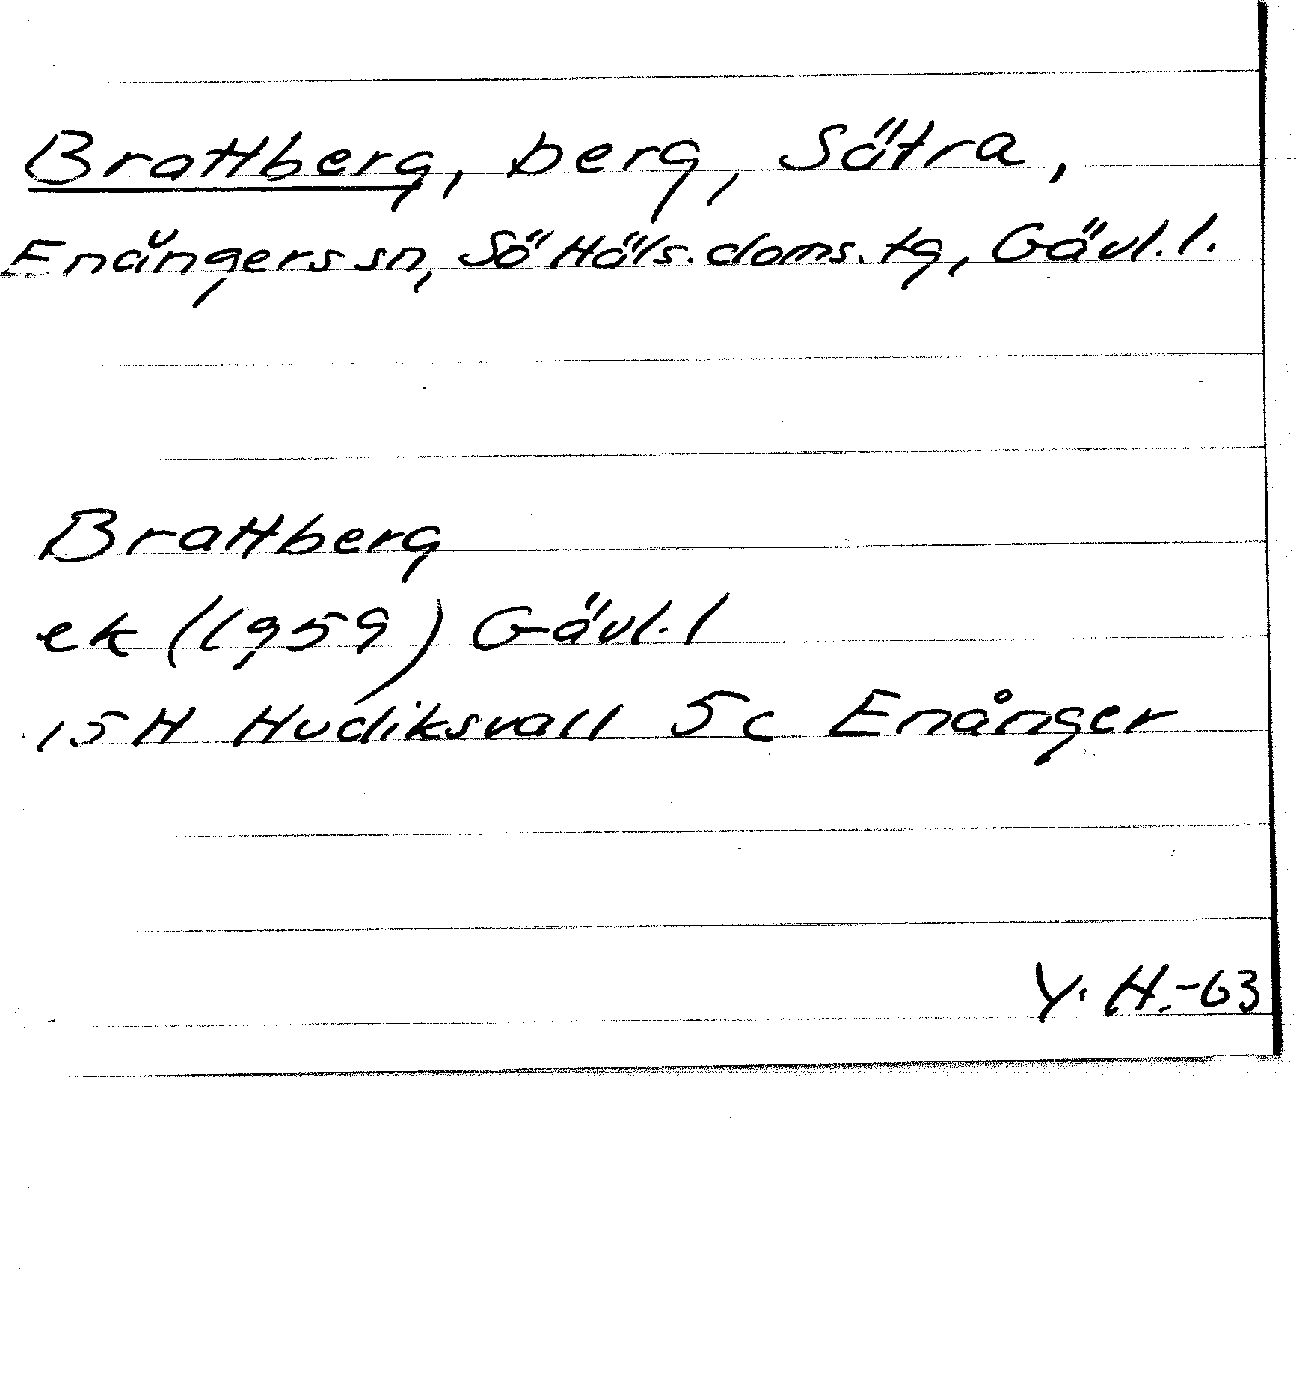 Brattberg, berg, Sätra,
Enångers sn, Sö Häls. doms. tg, Gävl. l.
Brattberg
ek (1959) Gävl. l
15H Hudiksvall 5c Enånger
Y. H.-63